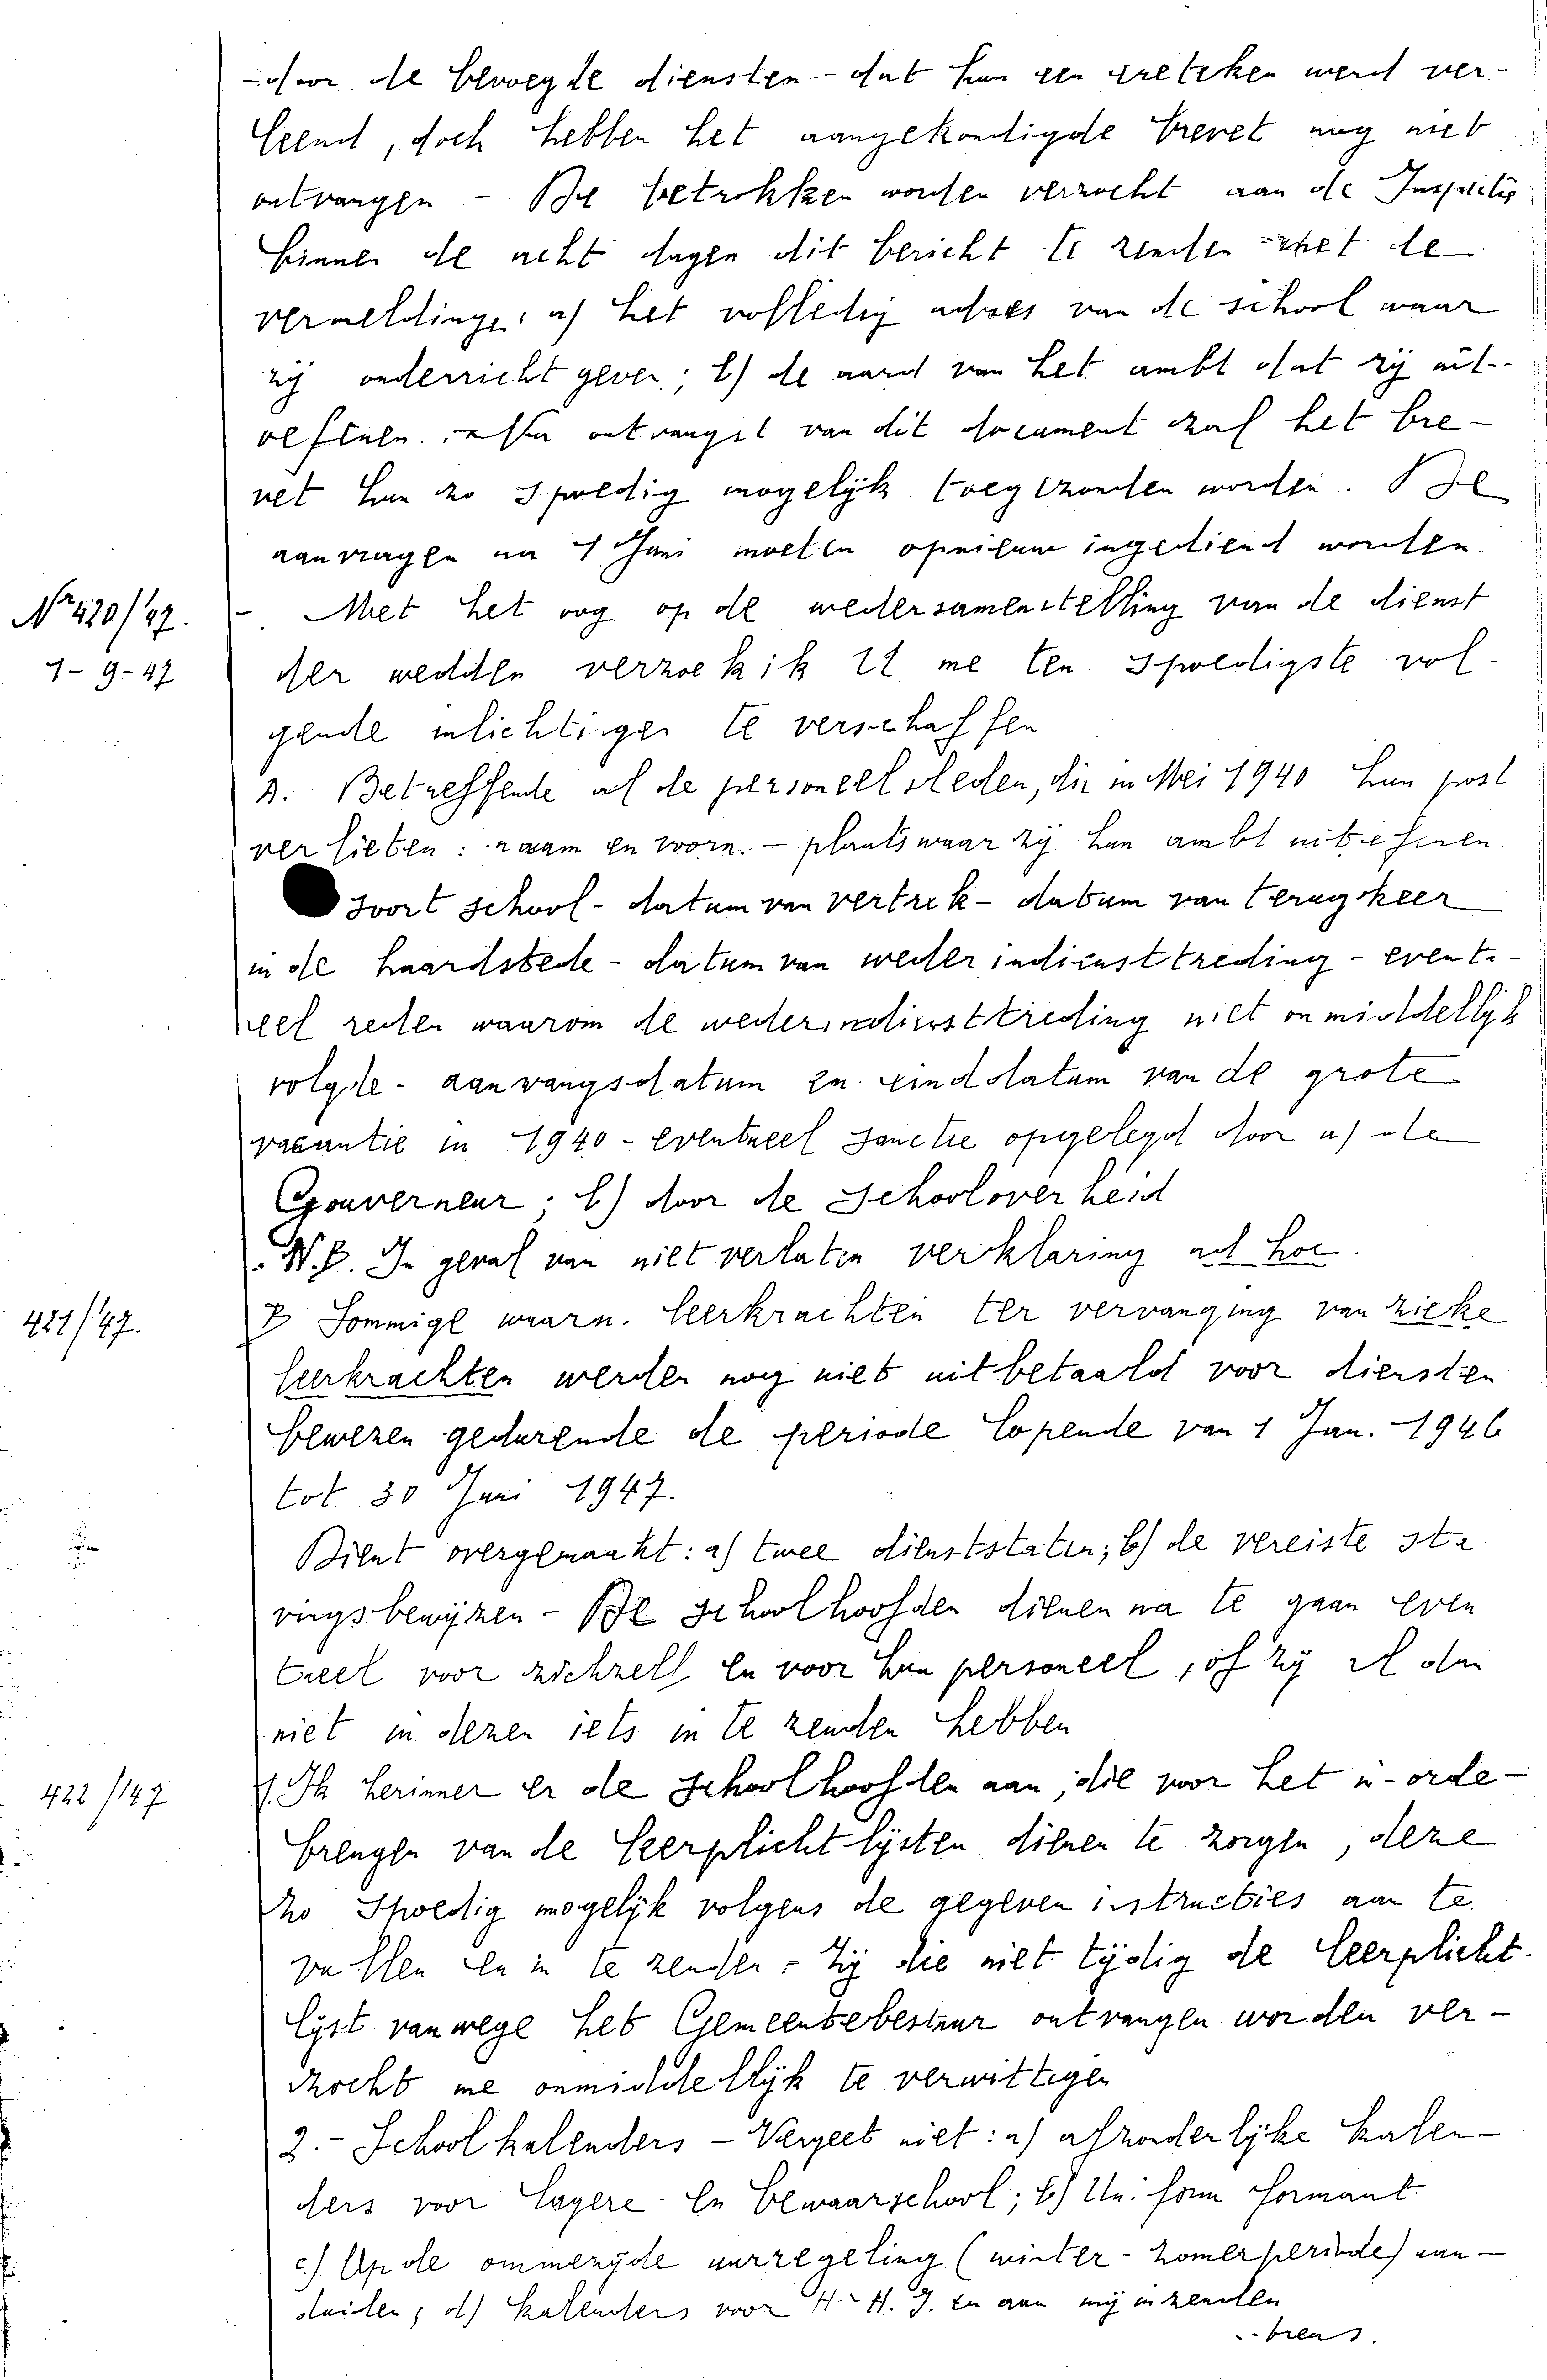 - door de bevoegde diensten - dat hun een ereteken werd ver-
leend, doch hebben het aangekondigde brevet nog niet
ontvangen - De betrokken worden verzocht aan de Inspectie
binnen de acht dagen dit bericht te zenden met de
vermeldingen: a) het volledig adres van de school waar
zij onderricht geven; b) de aard van het ambt dat zij uit-
oefenen. Na ontvangst van dit document zal het bre-
vet hun zo spoedig mogelijk toegezonden worden. De
aanvragen na 1 Juni moeten opnieuw ingediend worden.
No 420/47. - Met het oog op de wedersamenstelling van de dienst
1-9-47 der wedden verzoek ik U me ten spoedigste vol-
gende inlichtingen te verschaffen
A. Betreffende al de personeelsleden, die in Mei 1940 hun post
verlieten: naam en voorn. - plaats waar zij hun ambt uitoefenen
soort school - datum van vertrek - datum van terugkeer
in de haardstede - datum van wederindiensttreding - eventu-
eel reden waarom de wederindiensttreding niet onmiddellijk
volgde - aanvangsdatum en einddatum van de grote
vacantie in 1940 - eventueel sanctie opgelegd door a) de
Gouverneur; b) door de Schooloverheid
N.B. In geval van niet verlaten verklaring ad hoc.
421/47. B Sommige waarn. leerkrachten ter vervanging van zieke
leerkrachten werden nog niet uitbetaald voor diensten
bewezen gedurende de periode lopende van 1 Jan. 1946
tot 30 Juni 1947.
Dient overgemaakt: a) twee dienststaten; b) de vereiste sta
vingsbewijzen - De schoolhoofden dienen na te gaan even
tueel voor zichzelf en voor hun personeel, of zij al dan
niet in dezen iets in te zenden hebben
422/47 1. Ik herinner er de schoolhoofden aan, die voor het in-orde-
brengen van de leerplichtlijsten dienen te zorgen, deze
zo spoedig mogelijk volgens de gegeven instructies aan te
vullen en in te zenden - Zij die niet tijdig de leerplicht-
lijst vanwege het Gemeentebestuur ontvangen worden ver-
zocht me onmiddellijk te verwittigen
2. - Schoolkalenders - Vergeet niet: a) afzonderlijke kalen-
ders voor lagere- en bewaarschool; b) Uniform formant
c) Op de ommezijde uurregeling (winter- zomerperiode) aan-
duiden, d) kalenders voor H. H. I. en aan mij inzenden